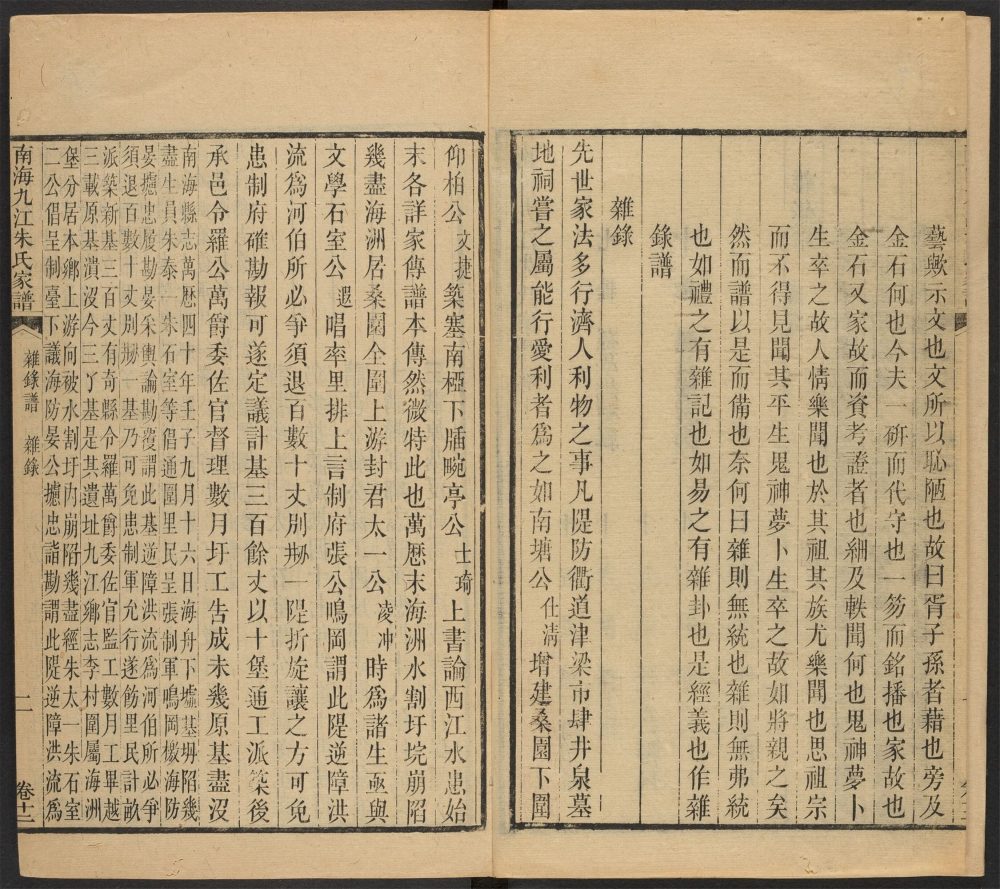 藝歟示文也文所以恥陋也故曰胥子孫者藉也旁及
金石何也今夫一硏而代守也一笏而銘播也家故也
金石又家故而資考證者也細及軼聞何也鬼神夢卜
生卒之故人情樂聞也於其祖其族尤樂聞也思祖宗
而不得見聞其平生鬼神夢卜生卒之故如將親之矣
然而譜以是而備也奈何曰雜則無統也雜則無弗統
也如禮之有雜記也如易之有雜卦也是經義也作雜
錄譜
雜錄
先世家法多行濟人利物之事凡隄防衢道津梁市肆井泉墓
地祠嘗之屬能行愛利者爲之如南塘公仕淸增建桑園下圍
仰柏公文捷築塞南極下牐畹亭公士琦上書論西江水患始
末各詳家傳譜本傳然微特此也萬厯末海洲水割圩垸崩陷
幾盡海洲居桑園全圍上游封君太一公凌冲時爲諸生亟與
文學石室公遐唱率里排上言制府張公鳴岡謂此隄逆障洪
流爲河伯所必爭須退百數十丈別刱一隄折旋讓之方可免
患制府確勘報可遂定議計基三百餘丈以十堡通工派築後
承邑令羅公萬爵委佐官督理數月圩工告成未幾原基盡沒
南海縣志萬厯四十年壬子九月十六日海舟下墟基坍陷幾
盡生員朱泰一朱石室等倡通圍里民呈張制軍鳴岡檄海防
晏壚忠履勘晏采輿論勘覆謂此基逆障洪流爲河伯所必爭
須退百數十丈別刱一基乃可免患制軍允行遂飭里民計畝
派築新基三百丈有奇縣令羅萬爵委佐官監工數月工畢越
三載原基潰沒今三丫基是其遺址九江鄉志李村圍屬海洲
堡分居本鄉上游向被水割圩內崩陷幾盡經朱太一朱石室
二公倡呈制臺下議海防晏公壚忠詣勘謂此隄逆障洪流爲
南海九江朱氏家譜
雜錄譜 雜錄
卷十二